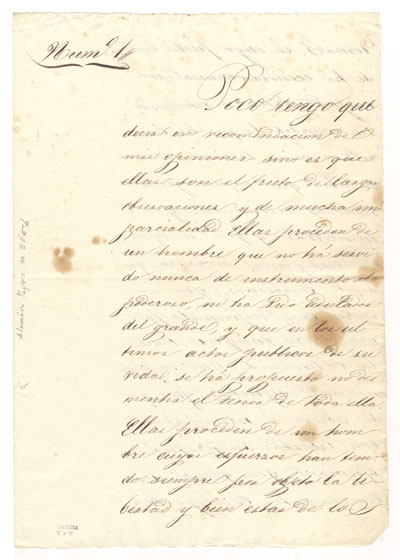 Num.º 1.º
Poco tengo que
decir en recomendacion de
mis opiniones sino es que
ellas son el fruto de largas
observaciones y de mucha im
parcialidad. Ellas proceden de
un hombre que no há servi
do nunca de instrumento al
poderoso, ni ha sido adulador
del grande, y que en los ul
timos actos publicos de su
vida se há propuesto no des
mentir el amor de toda ella
Ellas proceden de un hom
bre cuyos esfuerzos han teni
do siempre por objeto la li
bertad y bien estar de los
GARCIA